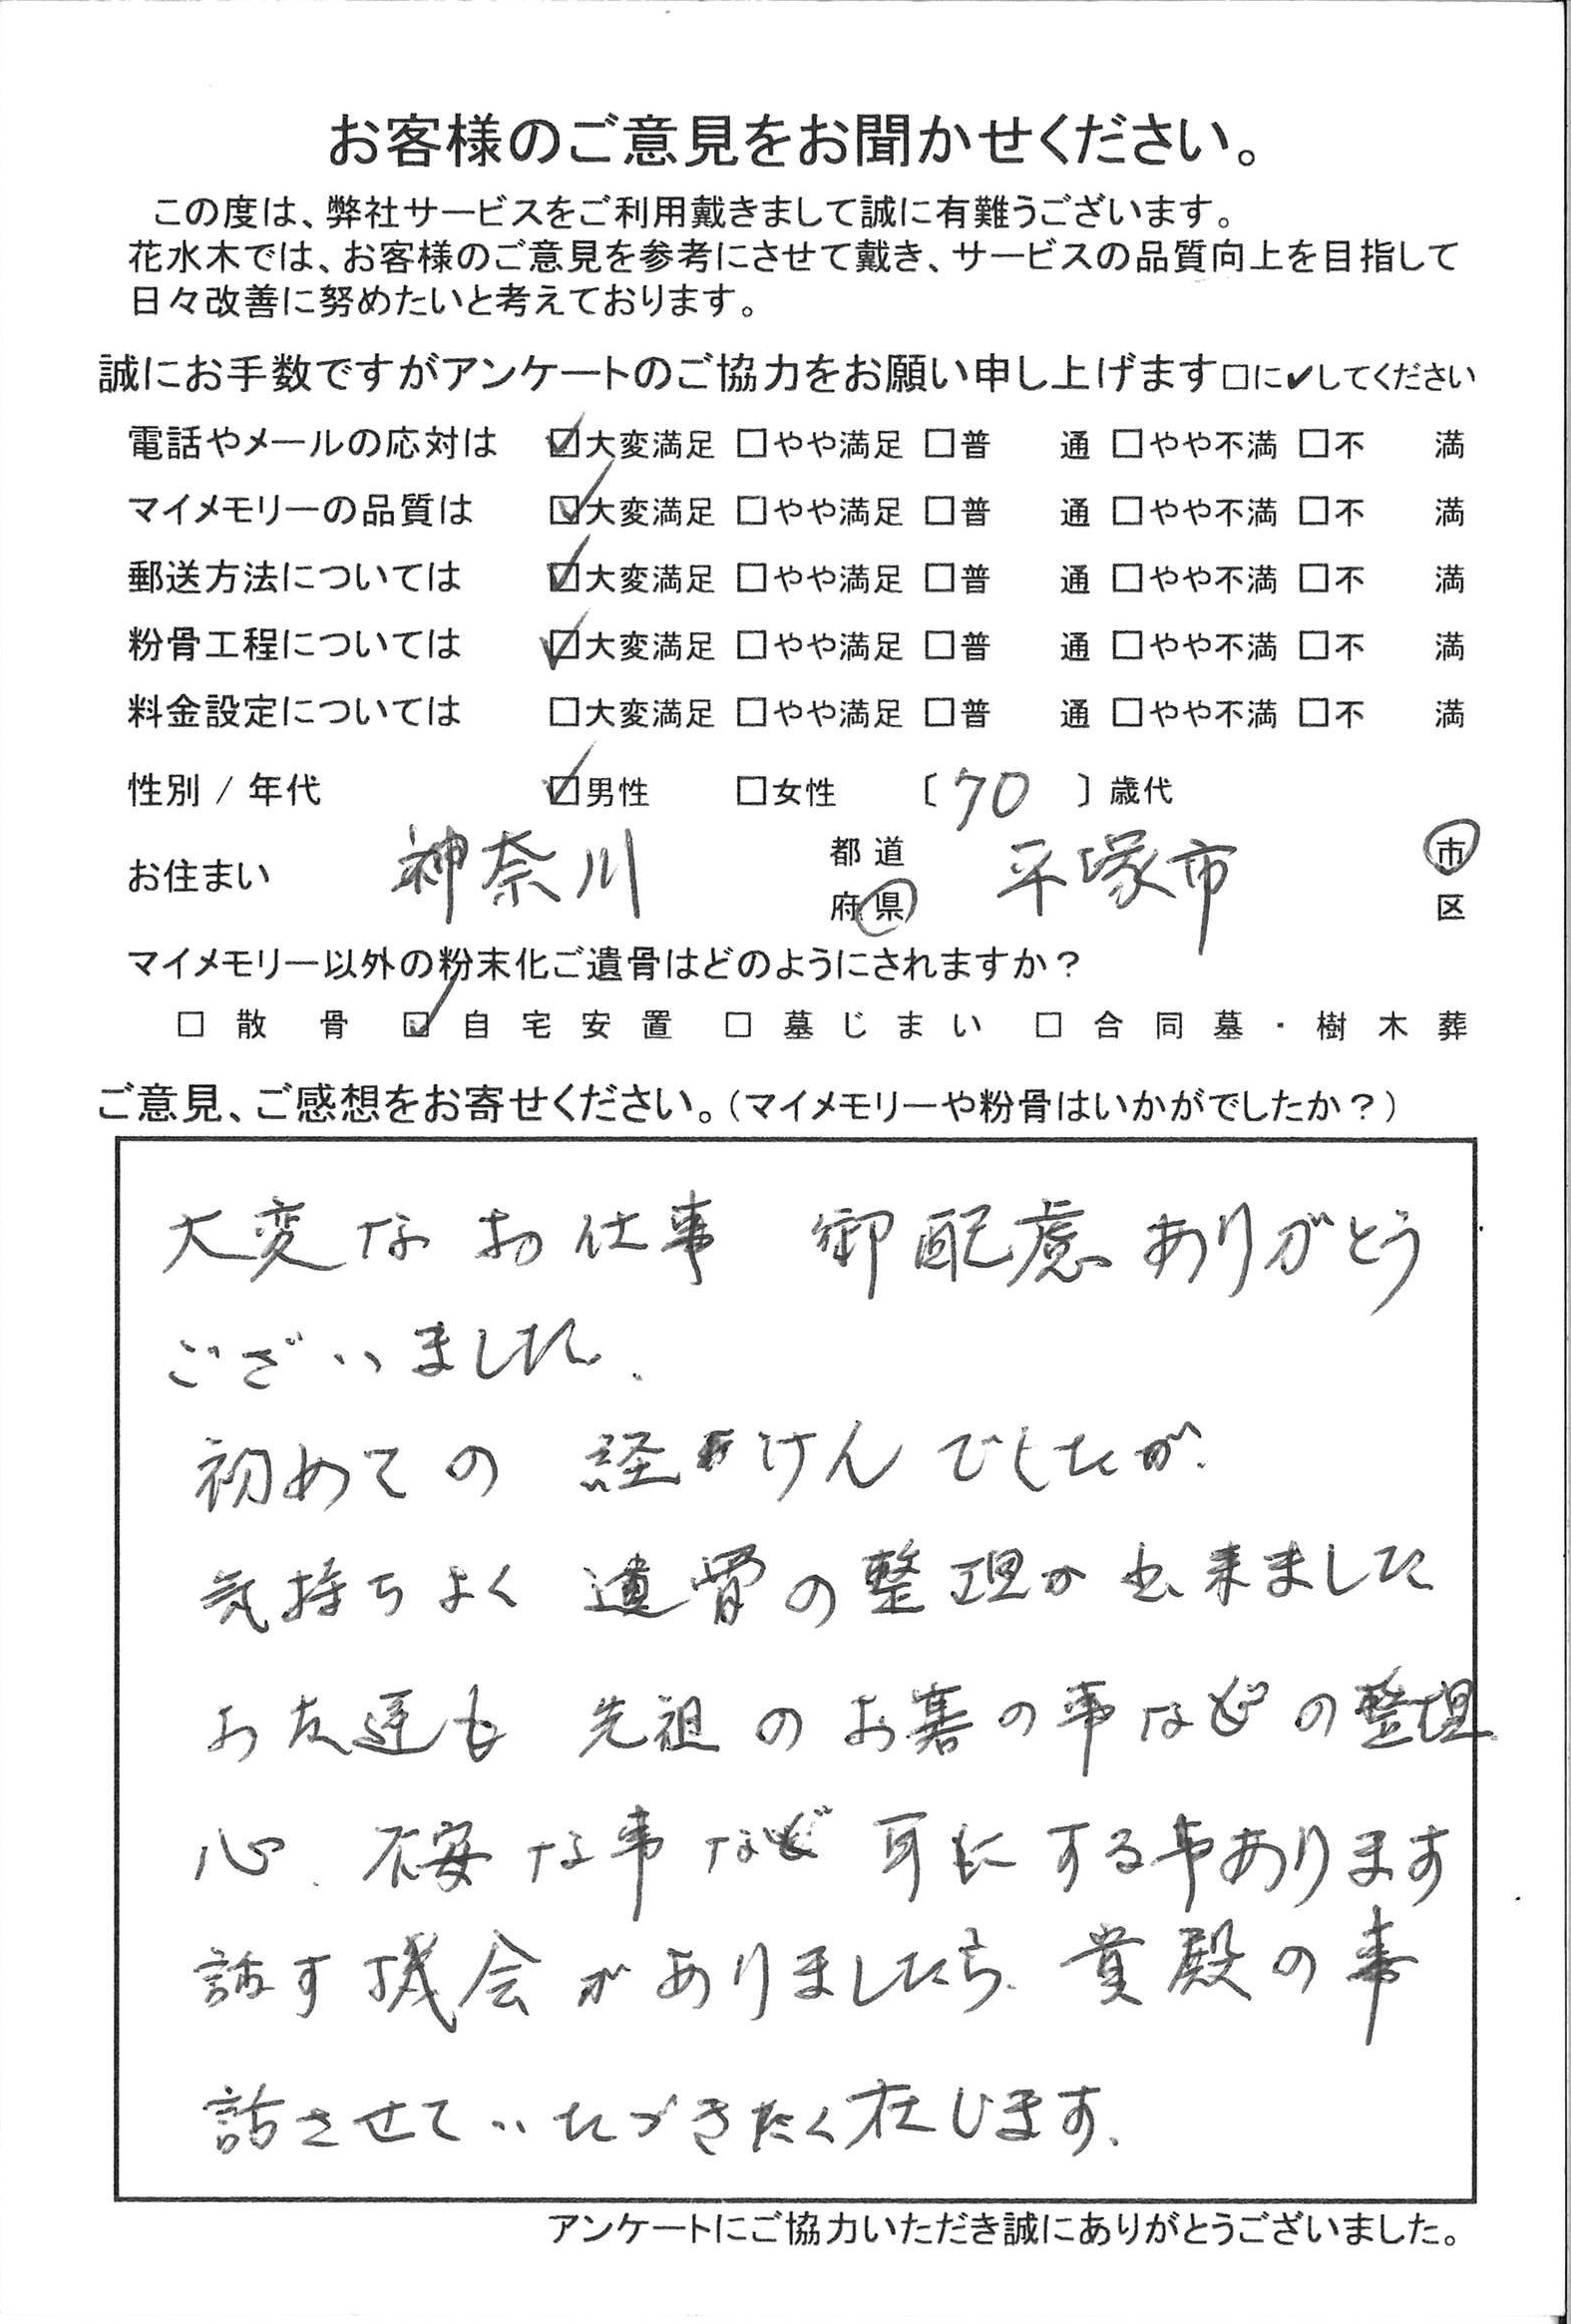 お客様のご意見をお聞かせください。
この度は、弊社サービスをご利用戴きまして誠に有難うございます。
花水木では、お客様のご意見を参考にさせて戴き、サービスの品質向上を目指して
日々改善に努めたいと考えております。
誠にお手数ですがアンケートのご協力をお願い申し上げます□に✔してください
電話やメールの応対は ☑大変満足 □やや満足 □普 通 □やや不満 □不 満
マイメモリーの品質は ☑大変満足 □やや満足 □普 通 □やや不満 □不 満
郵送方法については ☑大変満足 □やや満足 □普 通 □やや不満 □不 満
粉骨工程については ☑大変満足 □やや満足 □普 通 □やや不満 □不 満
料金設定については □大変満足 □やや満足 □普 通 □やや不満 □不 満
性別 / 年代 ☑男性 □女性 〔 70 〕歳代
お住まい 神奈川 都道府県 平塚市 市区
マイメモリー以外の粉末化ご遺骨はどのようにされますか？
□ 散 骨 ☑ 自宅安置 □ 墓じまい □ 合同墓・樹木葬
ご意見、ご感想をお寄せください。（マイメモリーや粉骨はいかがでしたか？）
大変なお仕事 御配慮ありがとう
ございました.
初めての 経けんでしたが、
気持ちよく 遺骨の整理が出来ました
お友達も 先祖のお墓の事などの整理
心、不安な事など耳にする事あります
話す機会がありましたら、貴殿の事
話させていたづきたく在じます、
アンケートにご協力いただき誠にありがとうございました。